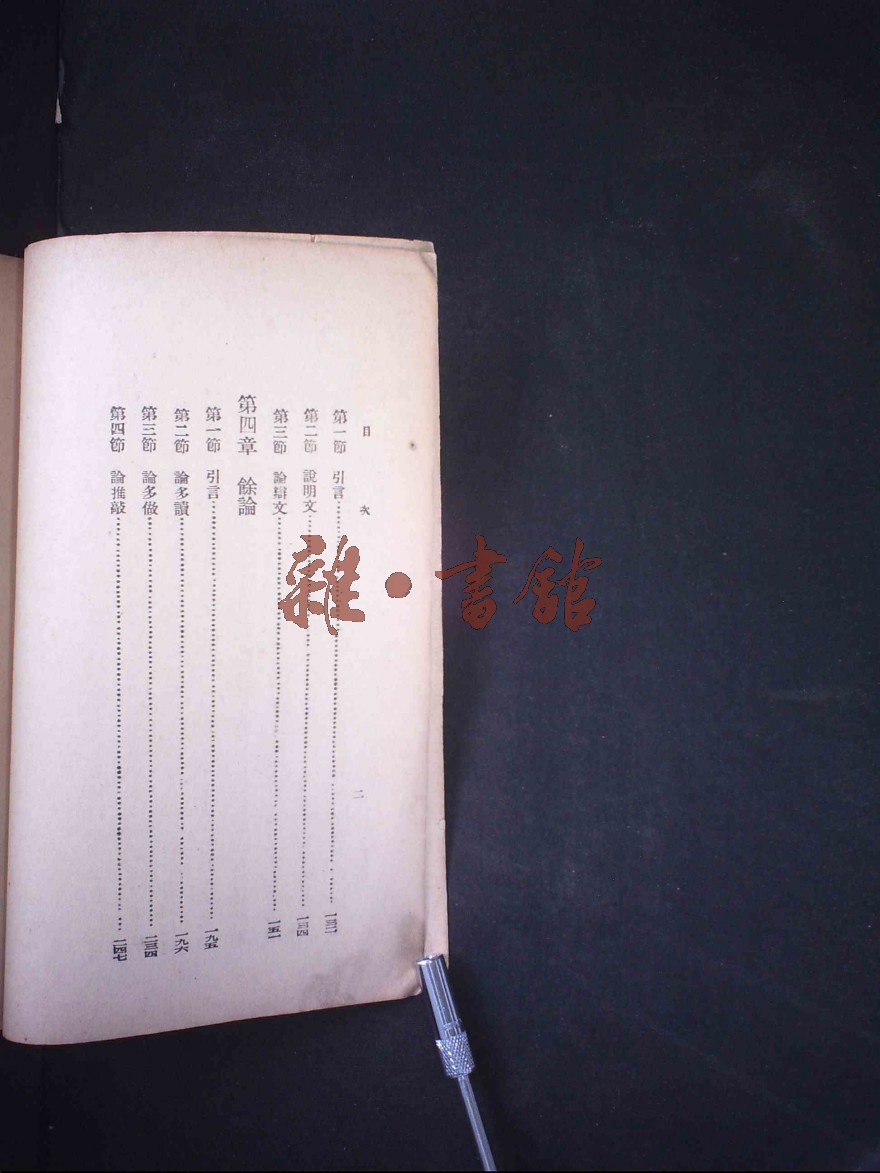 目次
二
第一節 引言…………一三二
第二節 說明文…………一三四
第三節 論辯文…………一五一
第四章 餘論
第一節 引言…………一九五
第二節 論多讀…………一九六
第三節 論多做…………二三四
第四節 論推敲…………二四七
雜·書館